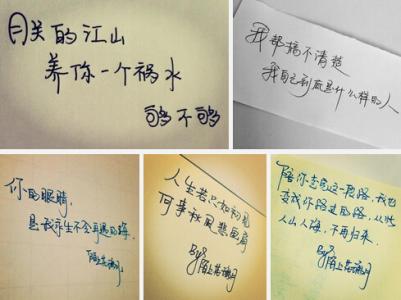 朕的江山
养你一个祸水
够不够
我都搞不清楚
我自己到底是什么样的人
你的眼睛,
是我余生不会再遇的海.
陌上
人生若只如初见
何事秋风悲画扇
By 陌上
陪你走完这一段路,我也
变成你路过的路,从此
人山人海,不再归来.
By 陌上